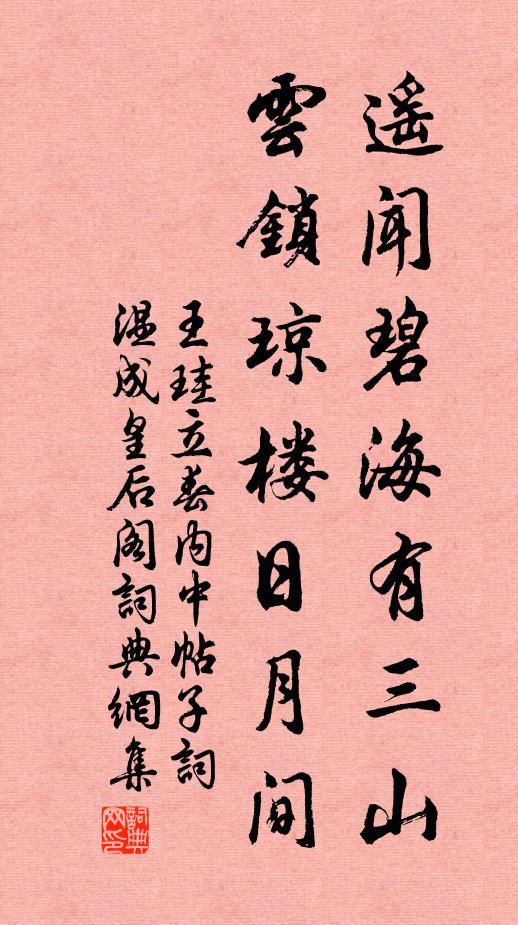 遥闻碧海有三山
雲鎖琼楼日月间
王珪立春内中帖子詞
温成皇后阁詞典網集
詞典网印